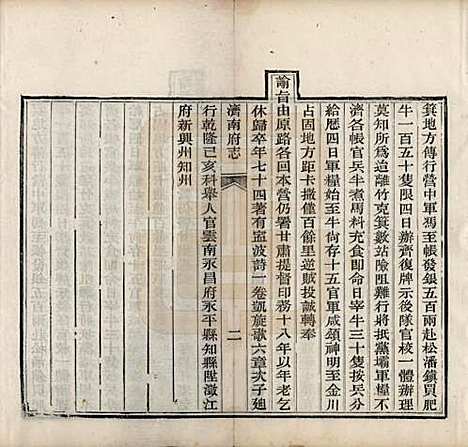 箕地方傳行營中軍馮至帳發銀五百兩赴松潘鎮買肥
牛一百五十隻限四日辦齊復牌示後隊官校一體辦理
莫知所為迨離竹克箕數站險阻難行將抵黨壩軍無接
濟各帳官兵牛煮馬料充食即命日宰牛三十隻按兵分
給歷四日軍糧始至牛何存十五官軍咸頌神明至金川
占固地方距卡撒僅百餘里逆賊投誠轉奉
諭旨由原路各回本營仍署甘肅提督印務十八年以年老乞
休歸卒年七十四著有寧波詩一卷凱旋歌六章次子廷
濟南府志
二
行乾隆己亥科舉人官雲南永昌府永平縣知縣陞澂江
府新興州知州